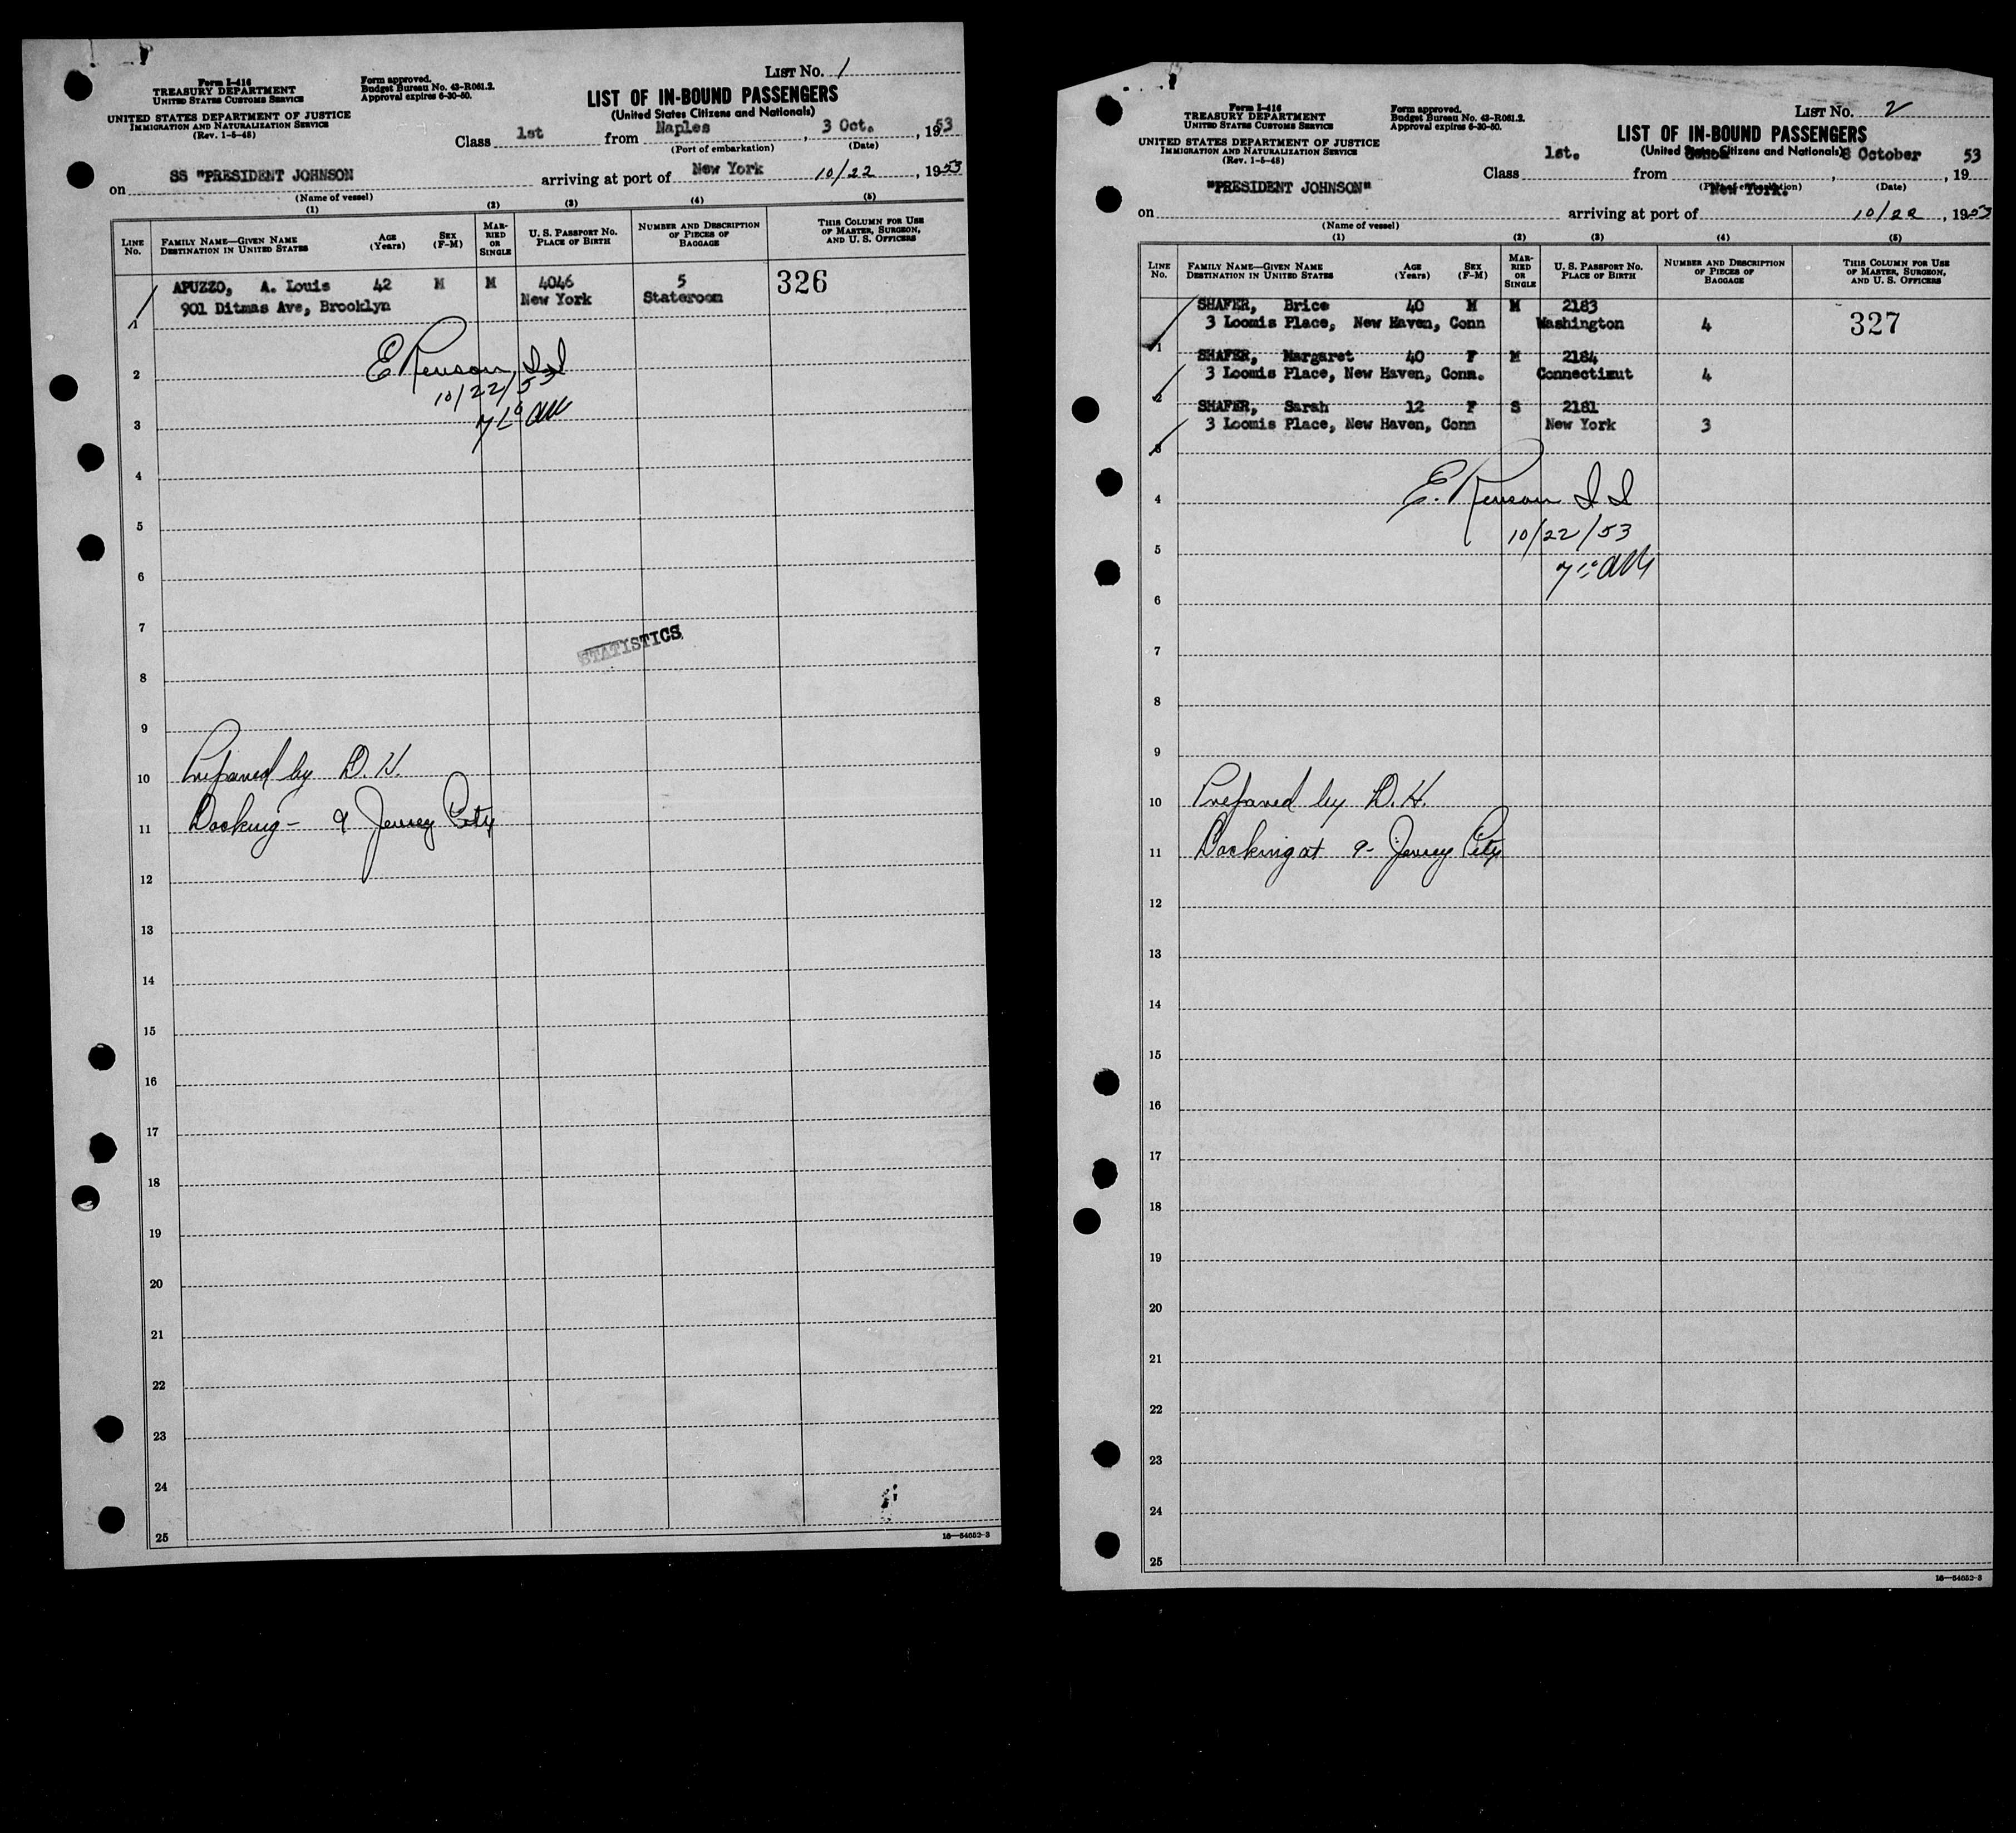 LIST No. 1
Form I-416
TREASURY DEPARTMENT
UNITED STATES CUSTOMS SERVICE
UNITED STATES DEPARTMENT OF JUSTICE
IMMIGRATION AND NATURALIZATION SERVICE
(Rev. 1-5-48)
Form approved.
Budget Bureau No. 43-R061.2.
Approval expires 6-30-50.
LIST OF IN-BOUND PASSENGERS
(United States Citizens and Nationals)
Class 1st from Naples, 3 Oct., 1953
(Port of embarkation) (Date)
on SS "PRESIDENT JOHNSON arriving at port of New York 10/22, 1953
(Name of vessel)
(1) (2) (3) (4) (5)
LINE No. FAMILY NAME—GIVEN NAME DESTINATION IN UNITED STATES AGE (Years) SEX (F-M) MARRIED OR SINGLE U. S. PASSPORT No. PLACE OF BIRTH NUMBER AND DESCRIPTION OF PIECES OF BAGGAGE THIS COLUMN FOR USE OF MASTER, SURGEON, AND U. S. OFFICERS
APUZZO, A. Louis 42 M M 4046 5 326
1 901 Ditmas Ave, Brooklyn New York Stateroom
2
10/22/53
3
4
5
6
7
STATISTICS
8
9
10 Prepared by D. H.
11 Docking - 9 Jersey City
12
13
14
15
16
17
18
19
20
21
22
23
24
25
16—54652-3
LIST No. 2
Form I-416
TREASURY DEPARTMENT
UNITED STATES CUSTOMS SERVICE
UNITED STATES DEPARTMENT OF JUSTICE
IMMIGRATION AND NATURALIZATION SERVICE
(Rev. 1-5-48)
Form approved.
Budget Bureau No. 43-R061.2.
Approval expires 6-30-50.
LIST OF IN-BOUND PASSENGERS
(United States Citizens and Nationals)
Class 1st. from Genoa, 8 October, 1953
(Port of embarkation) (Date)
on "PRESIDENT JOHNSON" arriving at port of New York. 10/22, 1953
(Name of vessel)
(1) (2) (3) (4) (5)
LINE No. FAMILY NAME—GIVEN NAME DESTINATION IN UNITED STATES AGE (Years) SEX (F-M) MARRIED OR SINGLE U. S. PASSPORT No. PLACE OF BIRTH NUMBER AND DESCRIPTION OF PIECES OF BAGGAGE THIS COLUMN FOR USE OF MASTER, SURGEON, AND U. S. OFFICERS
SHAFER, Brice 40 M M 2183
1 3 Loomis Place, New Haven, Conn Washington 4 327
SHAFER, Margaret 40 F M 2184
2 3 Loomis Place, New Haven, Conn. Connecticut 4
SHAFER, Sarah 12 F S 2181
3 3 Loomis Place, New Haven, Conn New York 3
4
10/22/53
5
6
7
8
9
10 Prepared by D. H.
11 Docking at 9- Jersey City
12
13
14
15
16
17
18
19
20
21
22
23
24
25
16—54652-3